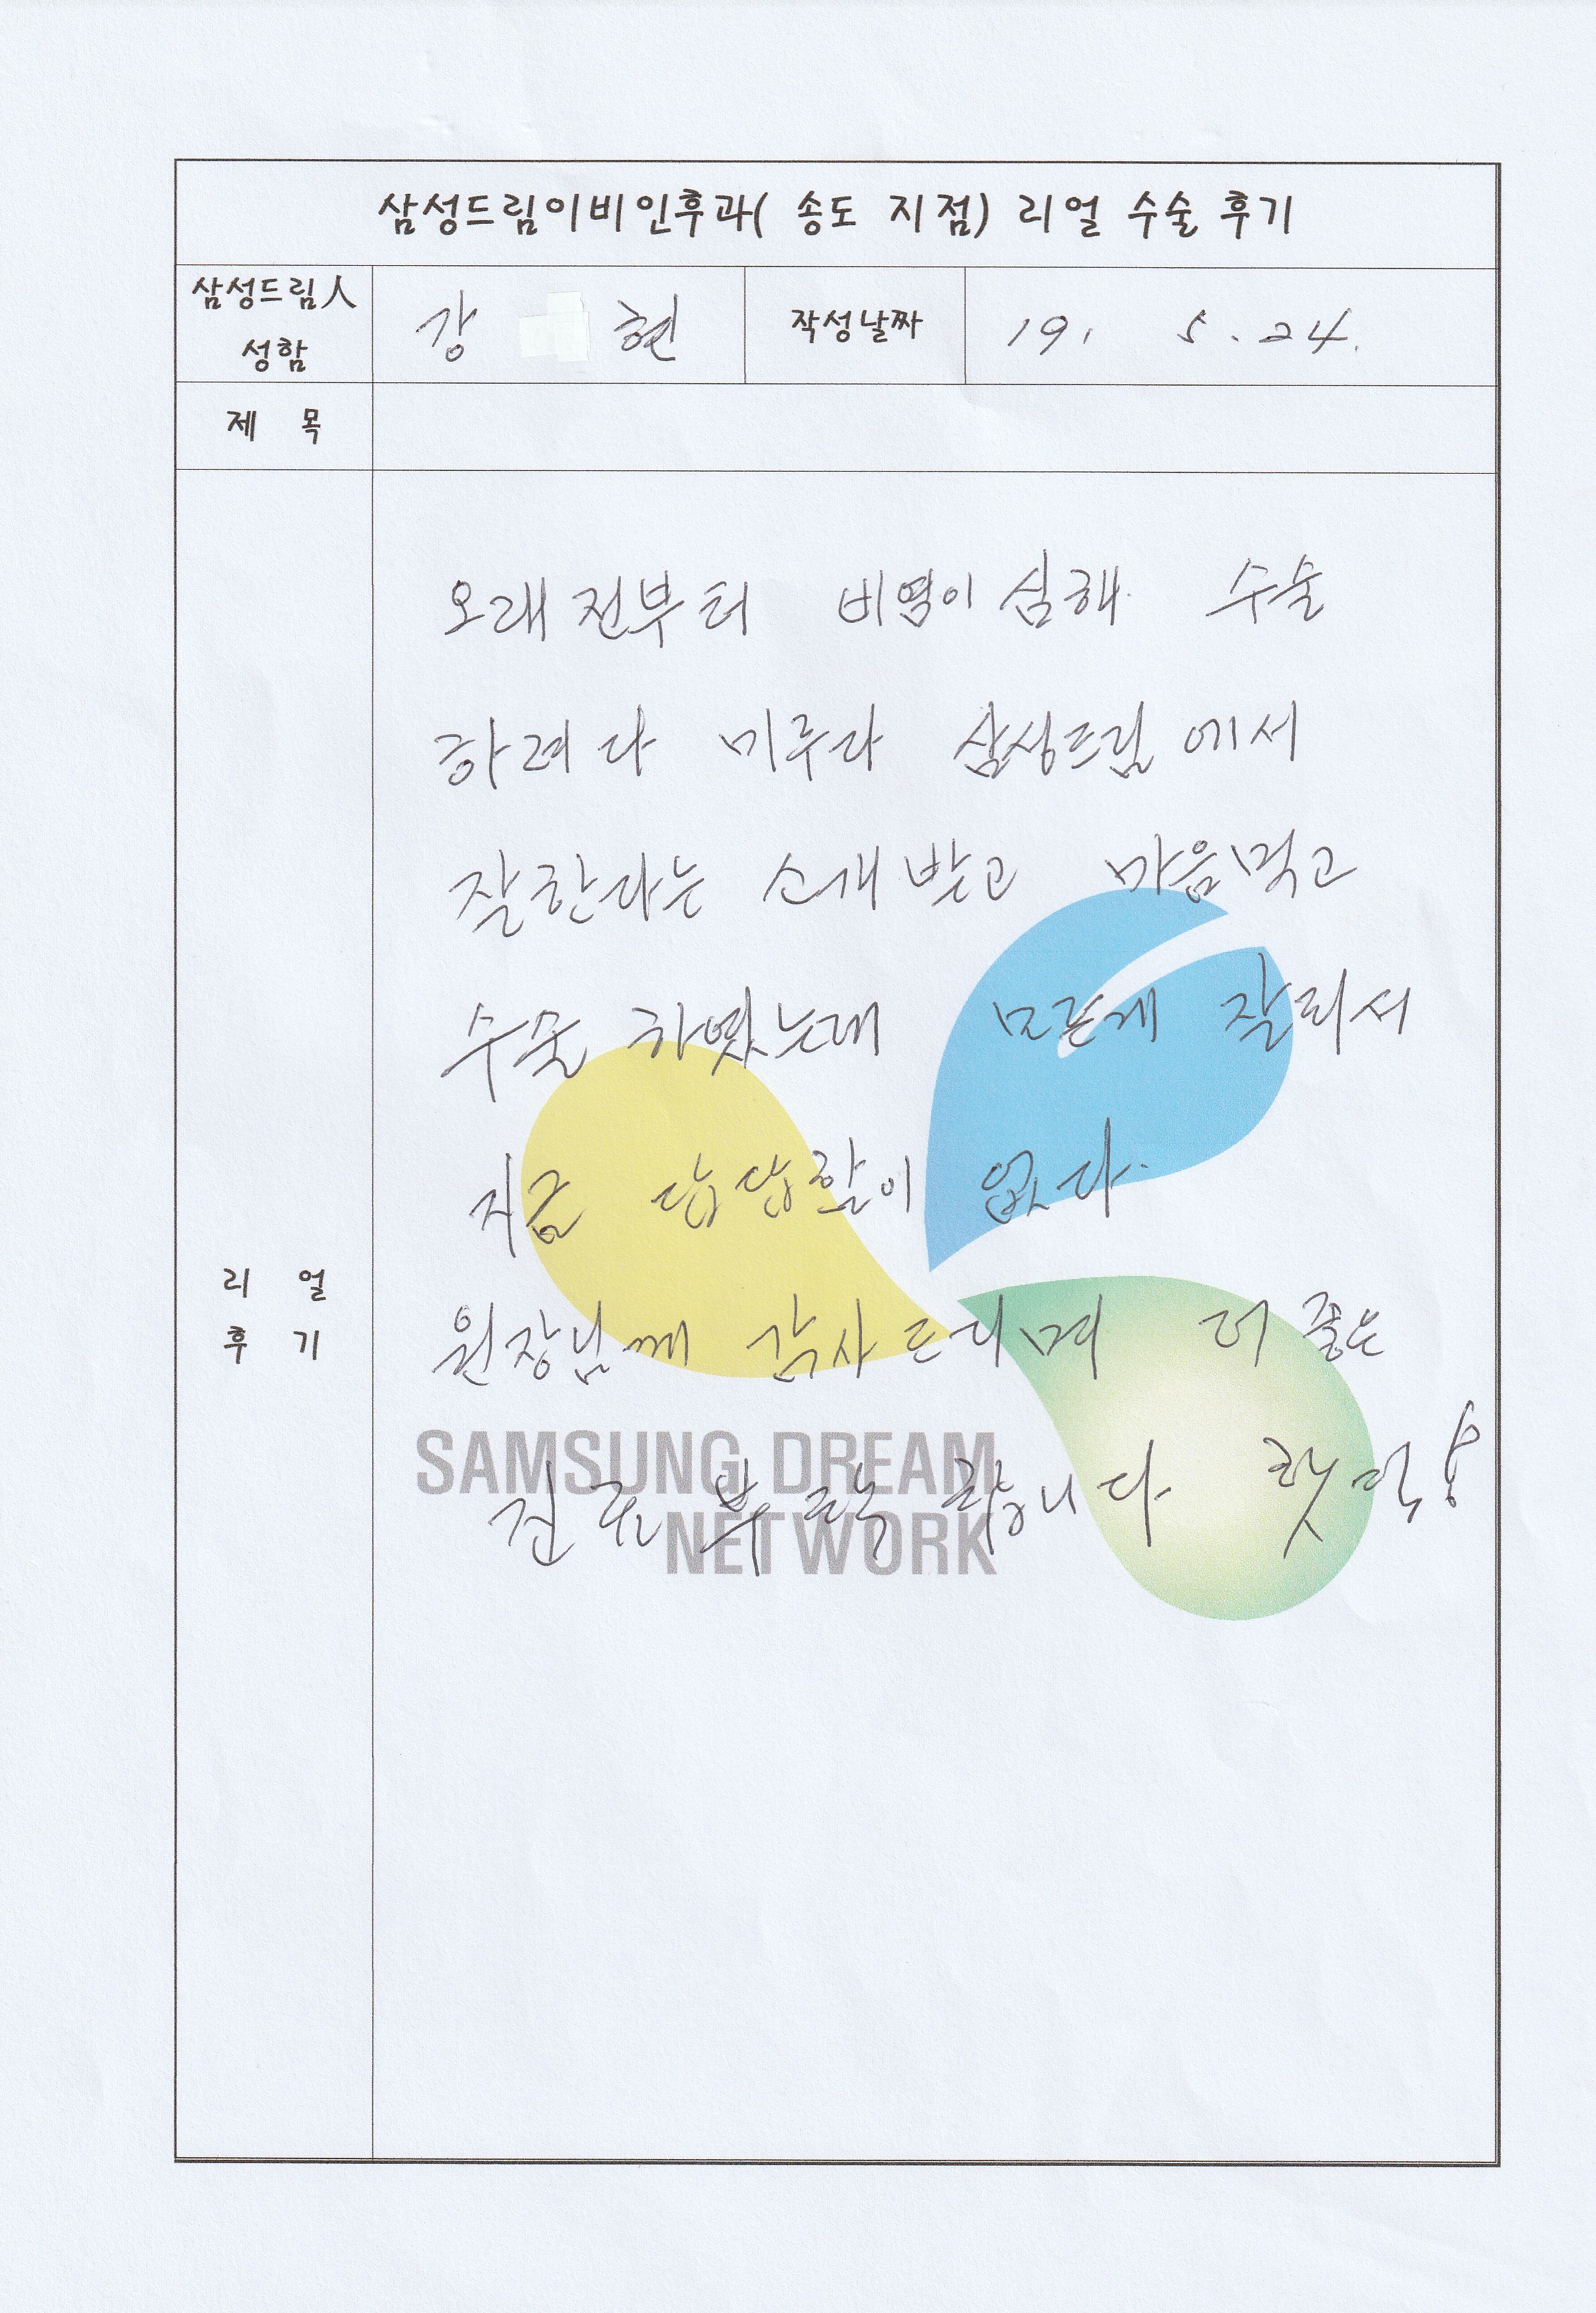 삼성드림이비인후과( 송도 지점) 리얼 수술 후기
삼성드림人
성함
강 현
작성날짜
19. 5. 24.
제 목
오래전부터 비염이 심해 수술
하려다 미루다 삼성드림에서
잘한다는 소개받고 마음먹고
수술 하였는데 모든게 잘되서
지금 답답함이 없다.
리 얼
후 기
원장님께 감사드리며 더 좋은
진료 부탁 합니다
SAMSUNG DREAM
NETWORK